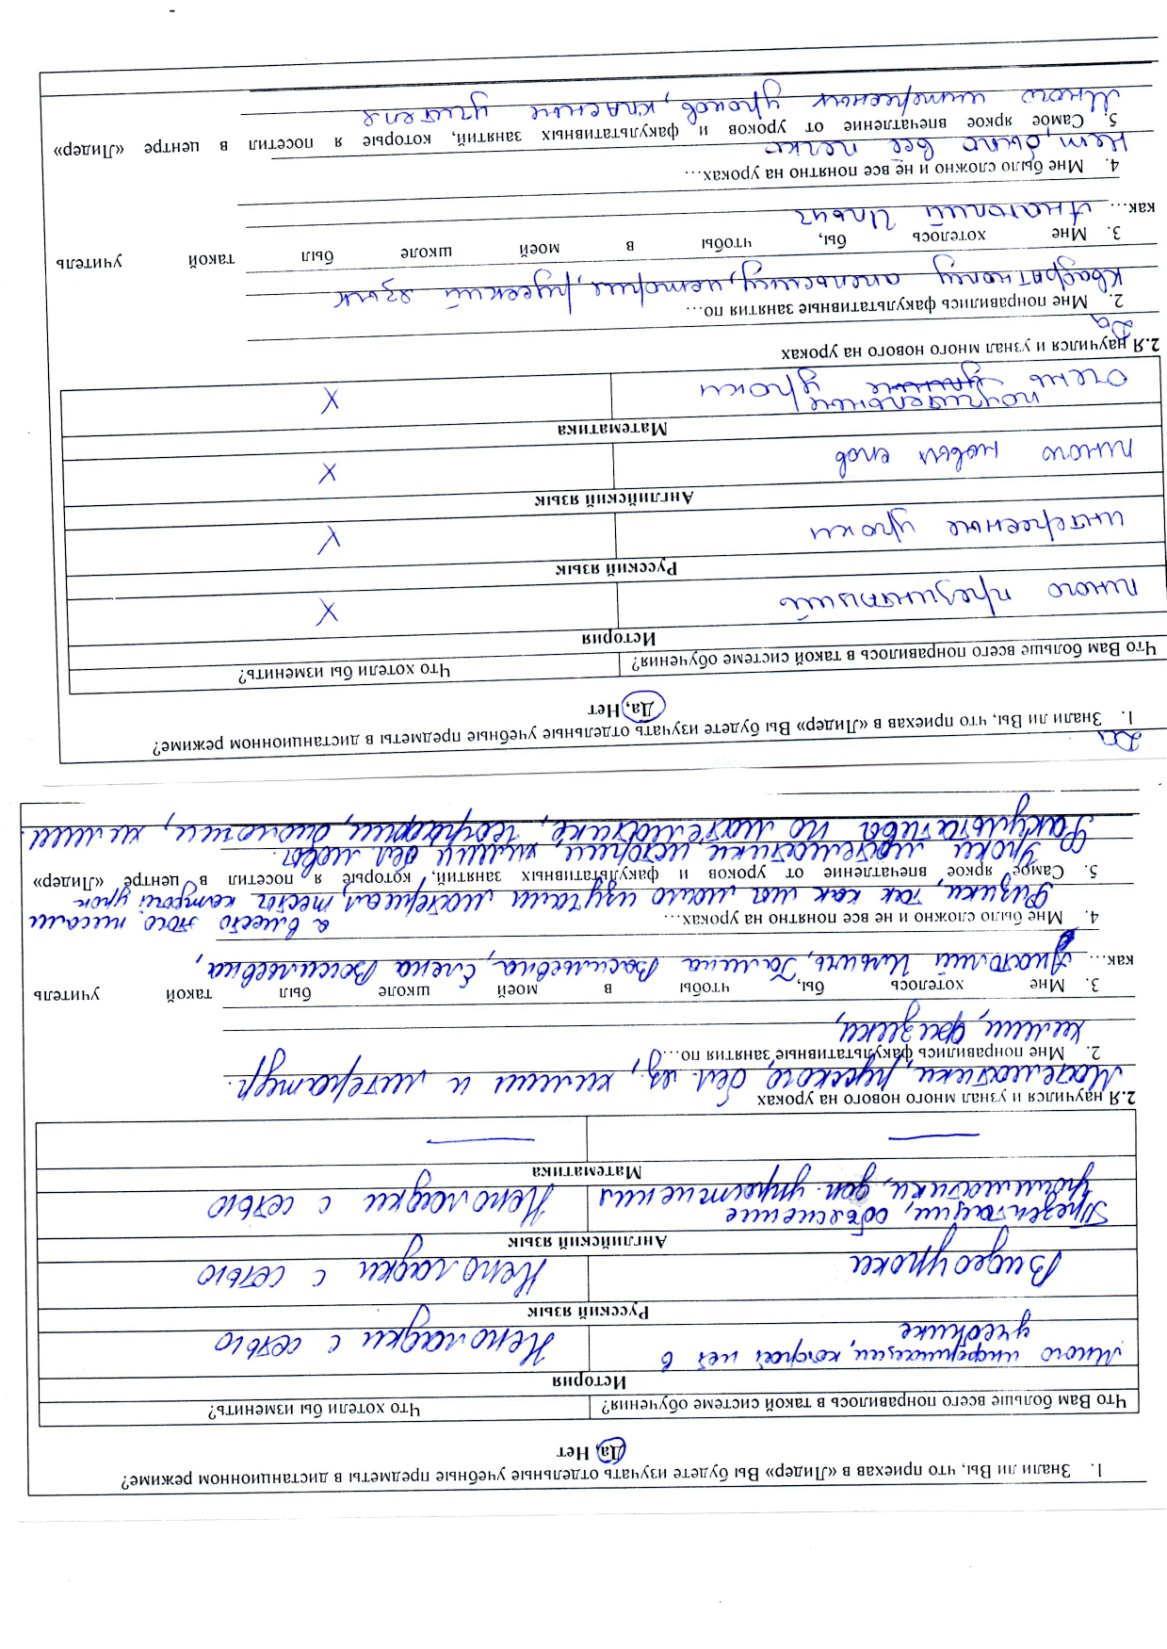 1. Знали ли Вы, что приехав в «Лидер» Вы будете изучать отдельные учебные предметы в дистанционном режиме?
Да, Нет
Что Вам больше всего понравилось в такой системе обучения? Что хотели бы изменить?
История
Много информации, которой нет в Неполадки с сетью
учебнике
Русский язык
Видеоуроки Неполадки с сетью
Английский язык
Презентации, объяснение Неполадки с сетью
грамматики, доп. упражнения
Математика
— —
2.Я научился и узнал много нового на уроках
Математики, русского, бел. яз., химии и литератур.
2. Мне понравились факультативные занятия по…
химии, физики,
3. Мне хотелось бы, чтобы в моей школе был такой учитель
как… Анатолий Ильич, Галина Васильевна, Елена Васильевна,
4. Мне было сложно и не все понятно на уроках… а вместо этого писали
Физики, так как мы мало изучали материал, тест, контрол. урок
5. Самое яркое впечатление от уроков и факультативных занятий, которые я посетил в центре «Лидер»
Уроки математики, истории, химии, бел. мовы.
Факультативы по математике, географии, биологии, химии.
Да
1. Знали ли Вы, что приехав в «Лидер» Вы будете изучать отдельные учебные предметы в дистанционном режиме?
Да, Нет
Что Вам больше всего понравилось в такой системе обучения? Что хотели бы изменить?
История
много презинтаций X
Русский язык
интересные уроки X
Английский язык
много новых слов X
Математика
поучительные
очень уроки X
2.Я научился и узнал много нового на уроках
Да
2. Мне понравились факультативные занятия по…
Квадратному апельсину, истории, русский язык
3. Мне хотелось бы, чтобы в моей школе был такой учитель
как… Анатолий Ильич
4. Мне было сложно и не все понятно на уроках…
Нет, было всё легко
5. Самое яркое впечатление от уроков и факультативных занятий, которые я посетил в центре «Лидер»
Много интересных уроков, классные учителя